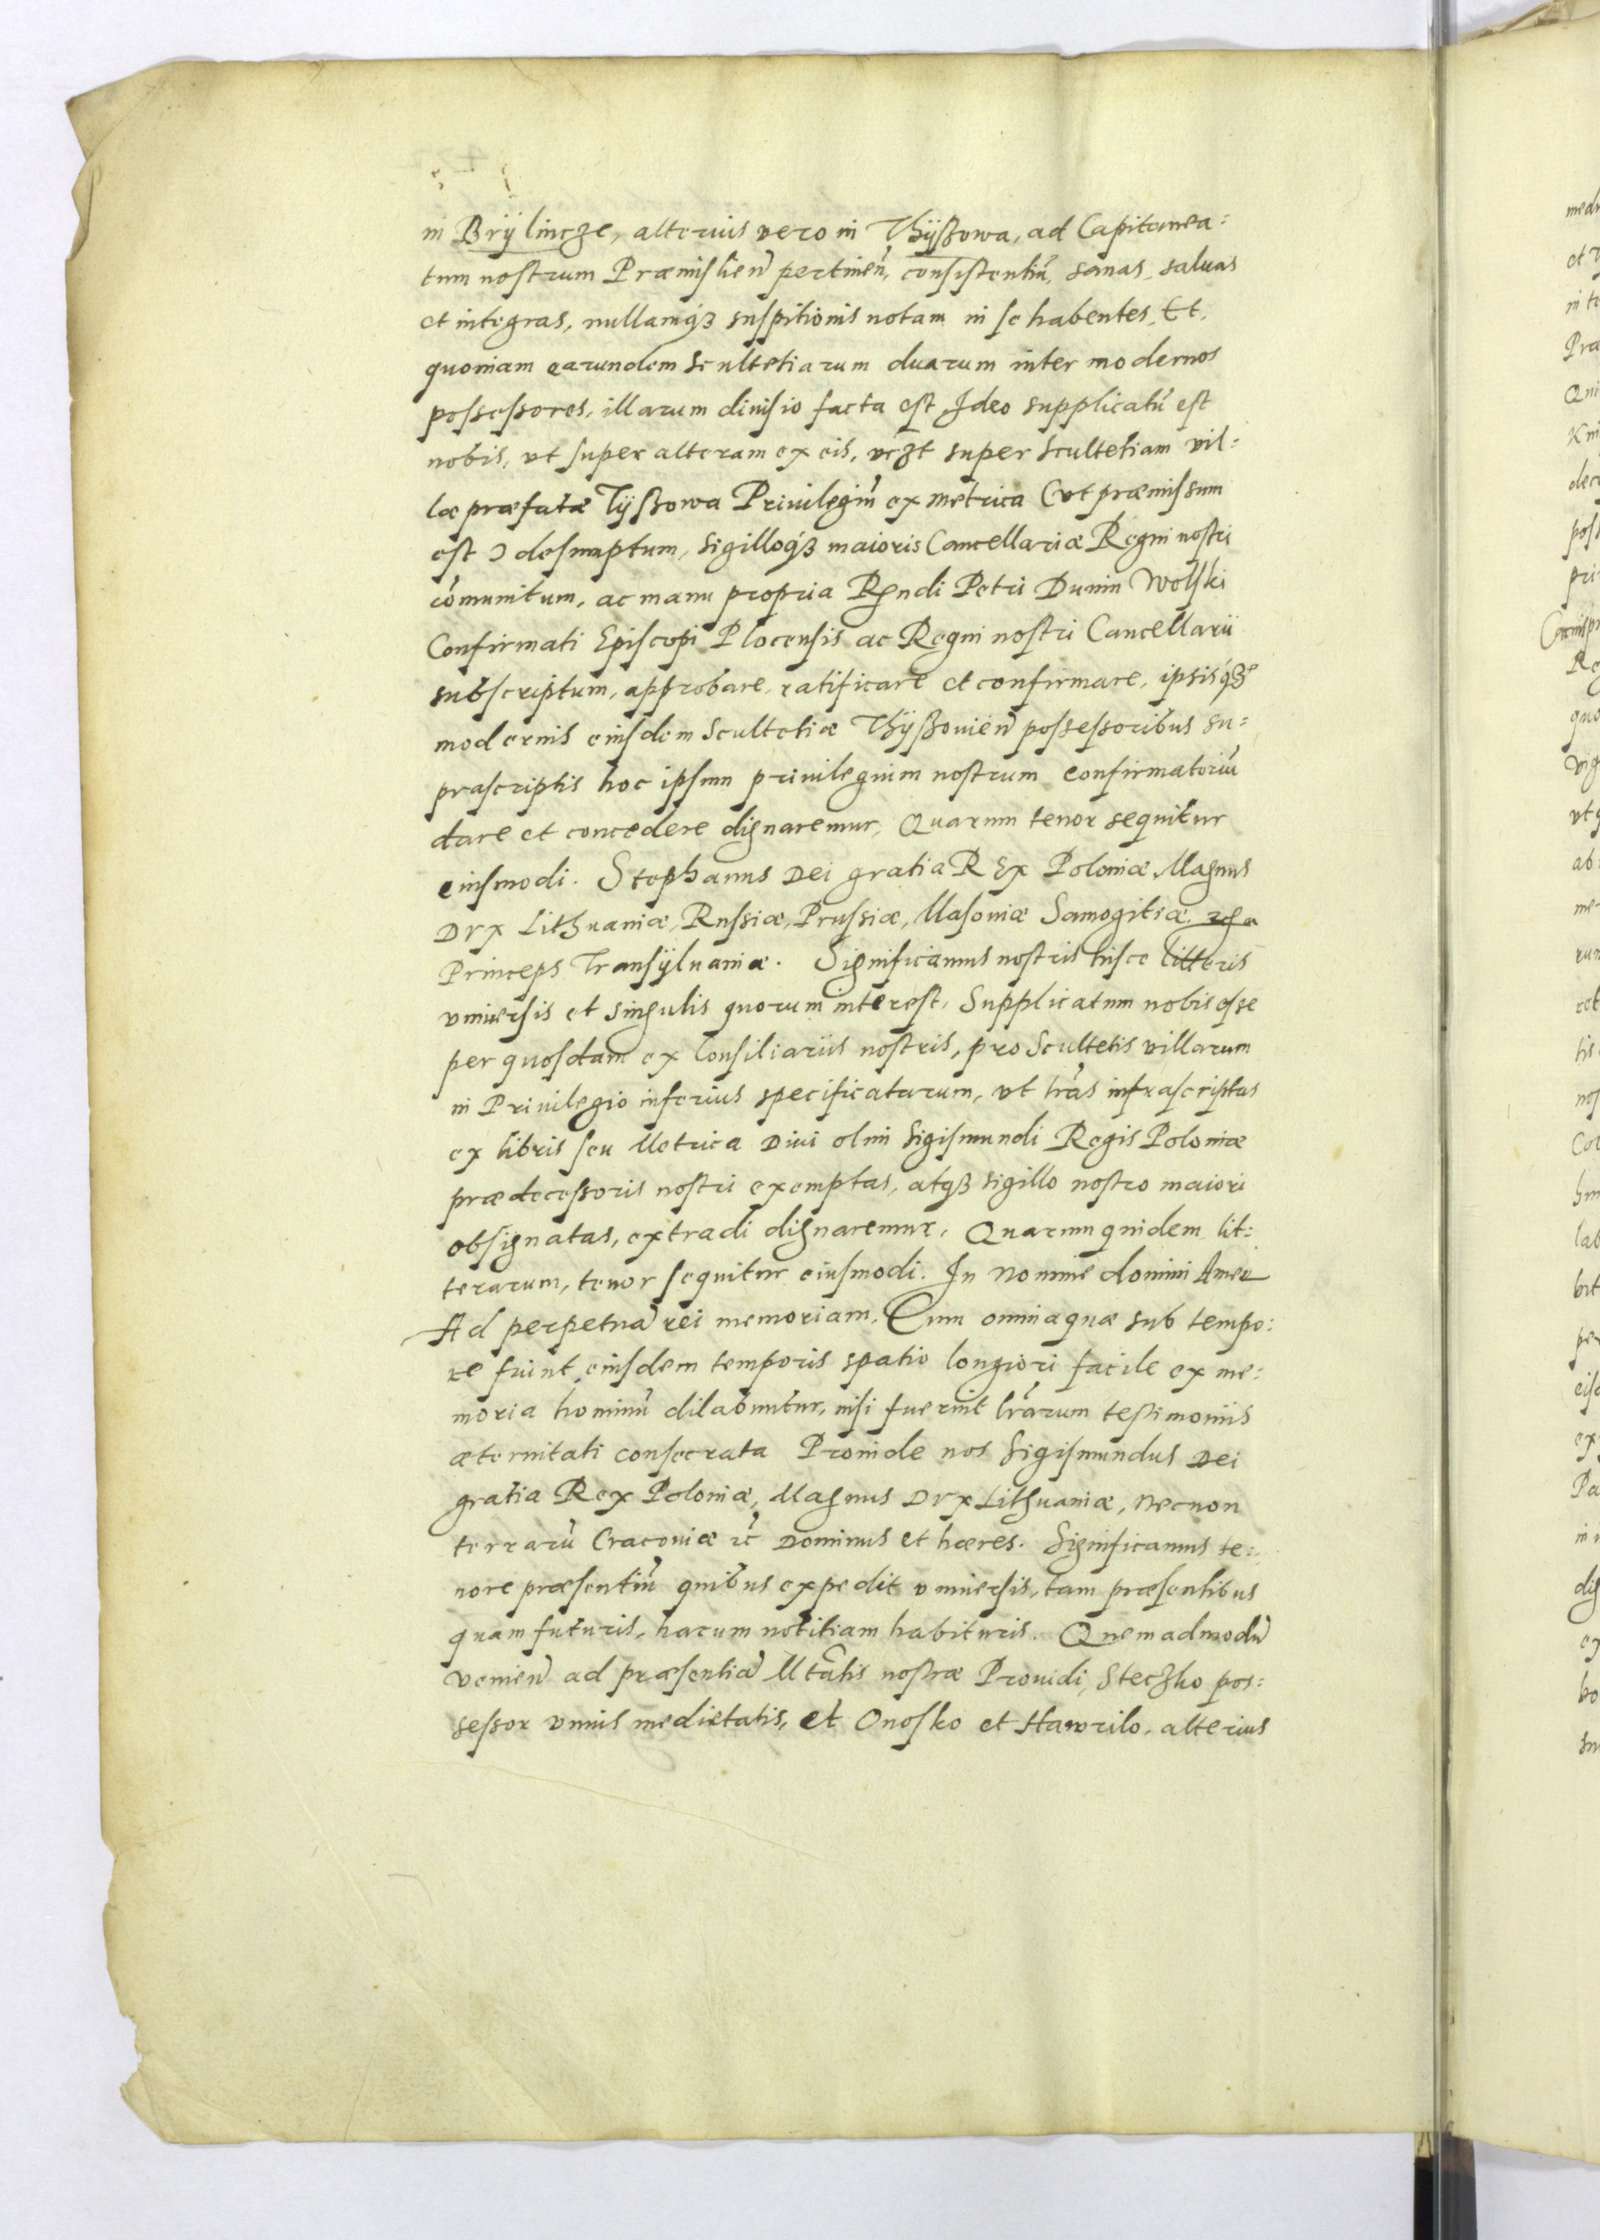 in Brÿlincze, alterius vero in Thÿssowa, ad Capitanea:
tum nostrum Præmislien̄ pertinen̄, consistentiū, sanas, saluas
et integras, nullamq́ȝ suspitionis notam in se habentes. Et,
quoniam earundem scultetiarum duarum inter modernos
possessores, illarum diuisio facta est, Ideo supplicatū est
nobis, vt super alteram ex eis, vczt super scultetiam vil:
læ præfatæ Tÿssowa Priuilegiū ex metrica (vt præmissum
est) desumptum, sigilloq́ȝ maioris Cancellariæ Regni nostri
com̄unitum, ac manu propria Rndi Petri Dunin Wolski
Confirmati Episcopi Plocensis ac Regni nostri Cancellarii
subscriptum, approbare, ratificare et confirmare, ipsisq́ȝ
modernis eiusdem Scultetiæ Thÿssouien̄ possessoribus su:
prascriptis hoc ipsum priuilegium nostrum confirmatoriū
dare et concedere dignaremur, Quarum tenor sequitur
eiusmodi. Stephanus Dei gratia Rex Poloniæ, Magnus
Dvx Lithuaniæ, Russiæ, Prussiæ, Masoniæ Samogitiæ.
Princeps Transÿluaniæ. Significamus nostris hisce litteris
vniuersis et singulis quorum interest, Supplicatum nobis esse
per quosdam ex Consiliariis nostris, pro Scultetis villarum
in Priuilegio inferius specificatarum, vt lrās infrascriptas
ex libris seu Metrica Diui olim Sigismundi Regis Poloniæ
prædecessoris nostri exemptas, atqȝ sigillo nostro maiori
obsignatas, extradi dignaremur. Quarum quidem lit:
terarum, tenor sequitur eiusmodi. In Nomine domini Amen
Ad perpetuā rei memoriam. Cum omnia quæ sub tempo:
re fiunt, eiusdem temporis spatio longiori facile ex me:
moria hominū dilabuntur, nisi fuerint lrārum testimoniis
æternitati consecrata Proinde nos Sigismundus Dei
gratia Rex Poloniæ, Magnus Dvx Lithuaniæ, necnon
terrarū Cracouiæ zc̄ Dominus et hæres. Significamus te:
nore præsentiū quibus expedit vniuersis, tam præsentibus
quam futuris, harum notitiam habituris. Quemadmodū
venien̄ ad præsentiā Mtātis nostræ Prouidi, Steczko pos:
sessor vnius medietatis, et Onosko et Hawrilo, alterius